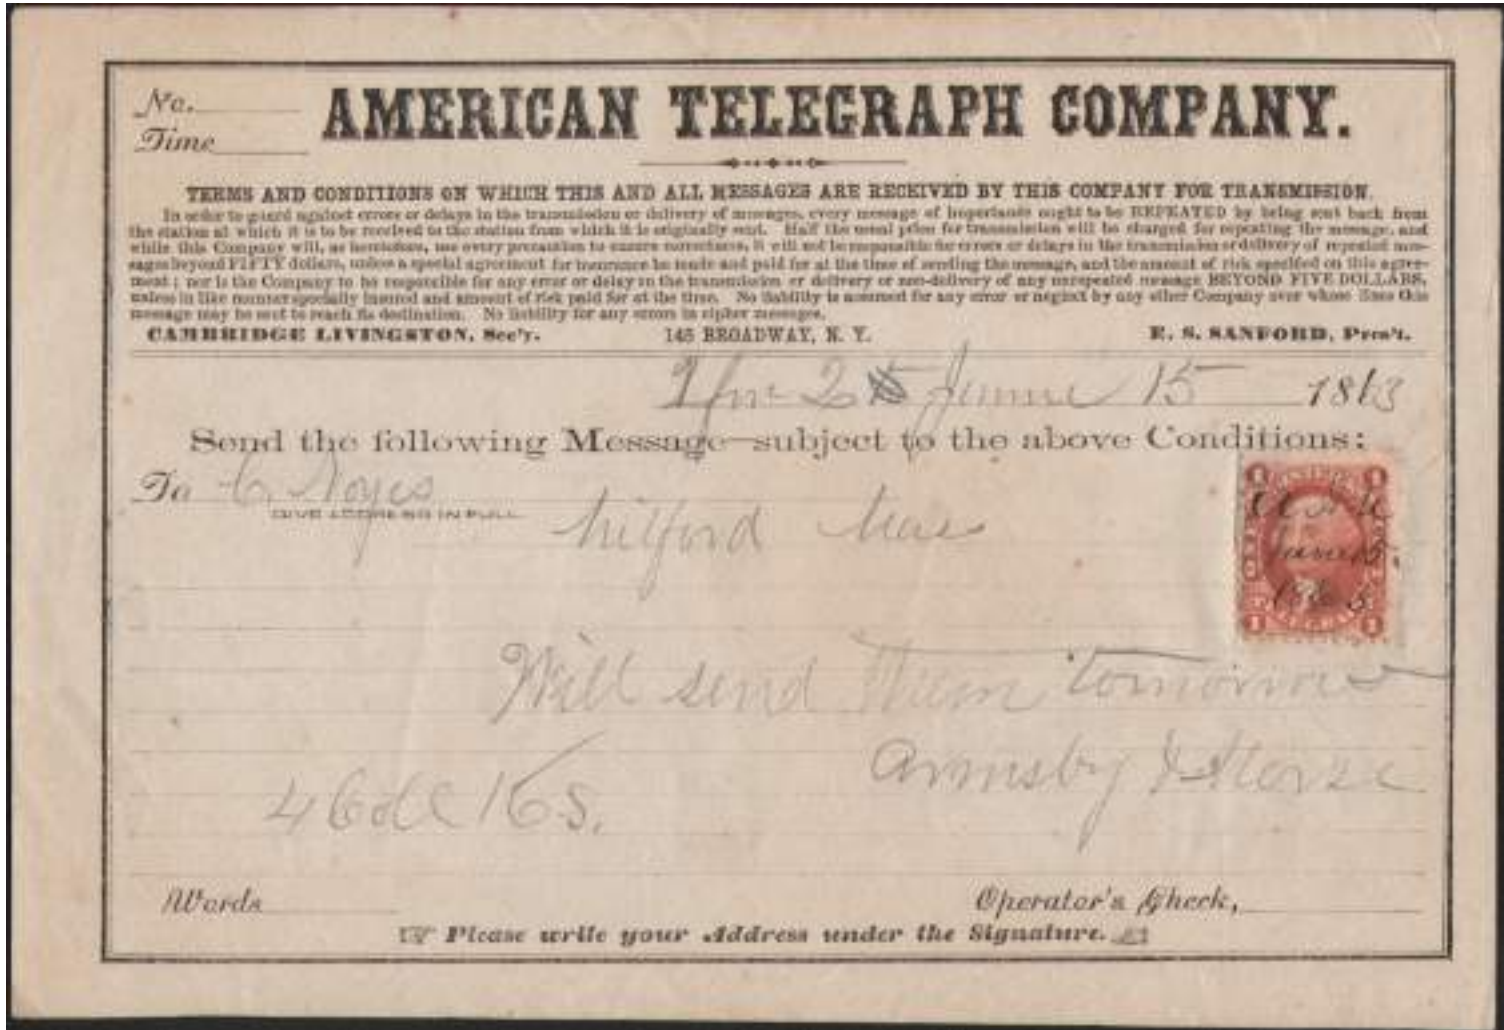 No.
Time
AMERICAN TELEGRAPH COMPANY.
TERMS AND CONDITIONS ON WHICH THIS AND ALL MESSAGES ARE RECEIVED BY THIS COMPANY FOR TRANSMISSION.
In order to guard against errors or delays in the transmission or delivery of messages, every message of importance ought to be REPEATED by being sent back from
the station at which it is to be received to the station from which it is originally sent. Half the usual price for transmission will be charged for repeating the message, and
while this Company will, as heretofore, use every precaution to ensure correctness, it will not be responsible for errors or delays in the transmission or delivery of repeated mes-
sages beyond FIFTY dollars, unless a special agreement for insurance be made and paid for at the time of sending the message, and the amount of risk specified on this agree-
ment; nor is the Company to be responsible for any error or delay in the transmission or delivery or non-delivery of any unrepeated message BEYOND FIVE DOLLARS,
unless in like manner specially insured and amount of risk paid for at the time. No liability is assumed for any error or neglect by any other Company over whose lines this
message may be sent to reach its destination. No liability for any errors in cipher messages.
CAMBRIDGE LIVINGSTON, Sec'y. 145 BROADWAY, N. Y. E. S. SANFORD, Pres't.
June 15 1863
Send the following Message subject to the above Conditions:
To C. Noyes
GIVE ADDRESS IN FULL
Milford Mas
June 15
Will send them tomorrow
Armsby & Morse
Words
Operator's Check,
Please write your Address under the Signature.